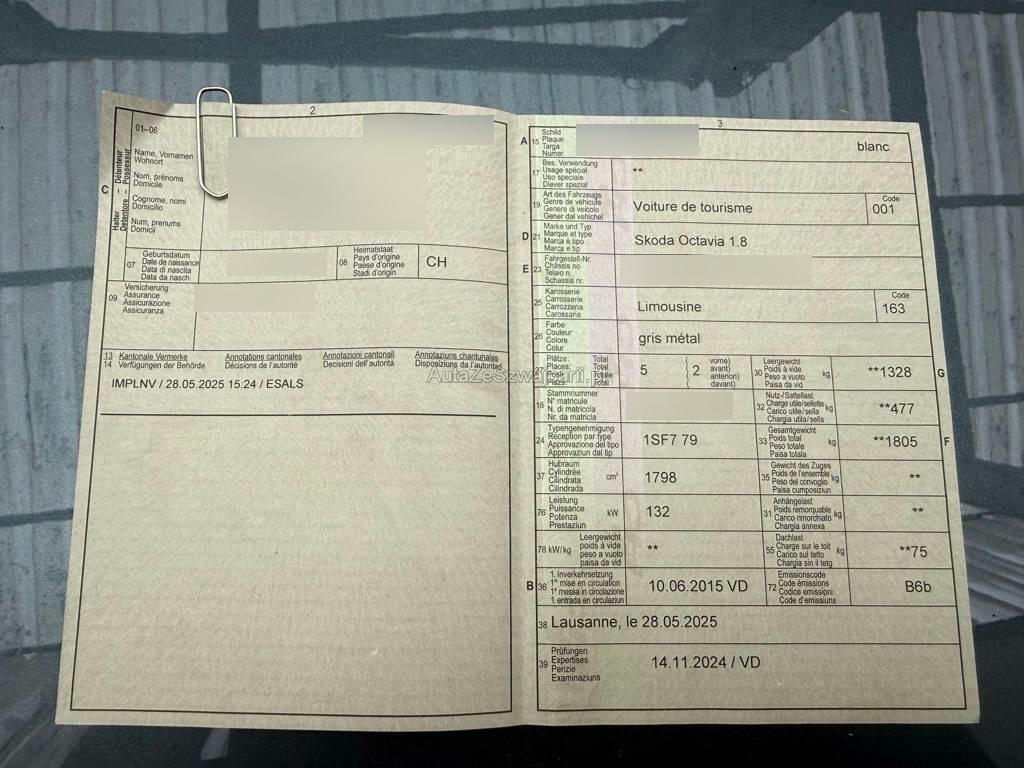 2
01–06
C
Halter – Détenteur
Detentore – Possessur
Name, Vornamen
Wohnort
Nom, prénoms
Domicile
Cognome, nomi
Domicilio
Num, prenums
Domicil
07
Geburtsdatum
Date de naissance
Data di nascita
Data da nasch.
08
Heimatstaat
Pays d'origine
Paese d'origine
Stadi d'origin
CH
09
Versicherung
Assurance
Assicurazione
Assicuranza
13 Kantonale Vermerke Annotations cantonales Annotazioni cantonali Annotaziuns chantunalas
14 Verfügungen der Behörde Décisions de l'autorité Decisioni dell'autorità Disposiziuns da l'autoritad
IMPLNV / 28.05.2025 15:24 / ESALS
3
A 15
Schild
Plaque
Targa
Numer
blanc
17
Bes. Verwendung
Usage spécial
Uso speciale
Diever spezial
**
19
Art des Fahrzeugs
Genre de véhicule
Genere di veicolo
Gener dal vehichel
Voiture de tourisme
Code
001
D 21
Marke und Typ
Marque et type
Marca e tipo
Marca e tip
Skoda Octavia 1.8
E 23
Fahrgestell-Nr.
Châssis no
Telaio n.
Schassis nr.
25
Karosserie
Carrosserie
Carrozzeria
Carossaria
Limousine
Code
163
26
Farbe
Couleur
Colore
Colur
gris métal
Plätze: Total
Places: Total
Totale
Plazs: Total
5
2
vorne)
avant)
anteriori)
davant)
30
Leergewicht
Poids à vide
Peso a vuoto
Paisa da vid
kg
**1328
G
AutaZeSzwajcarii.pl
18
Stammnummer
N° matricule
N. di matricola
Nr. da matricla
32
Nutz-/Sattellast
Charge utile/sellette
Carico utile/sella
Chargia utila/sella
kg
**477
24
Typengenehmigung
Réception par type
Approvazione del tipo
Approvaziun dal tip
1SF7 79
33
Gesamtgewicht
Poids total
Peso totale
Paisa totala
kg
**1805
F
37
Hubraum
Cylindrée
Cilindrata
Cilindrada
cm³
1798
35
Gewicht des Zuges
Poids de l'ensemble
Peso del convoglio
Paisa cumposiziun
kg
**
76
Leistung
Puissance
Potenza
Prestaziun
kW
132
31
Anhängelast
Poids remorquable
Carico rimorchiato
Chargia annexa
kg
**
78 kW/kg
Leergewicht
poids à vide
peso a vuoto
paisa da vid
**
55
Dachlast
Charge sur le toit
Carico sul tetto
Chargia sin il tetg
kg
**75
B 36
1. Inverkehrsetzung
1re mise en circulation
1a messa in circolazione
1. entrada en circulaziun
10.06.2015 VD
72
Emissionscode
Code émissions
Codice emissioni
Code d'emissiuns
B6b
38
Lausanne, le 28.05.2025
39
Prüfungen
Expertises
Perizie
Examinaziuns
14.11.2024 / VD